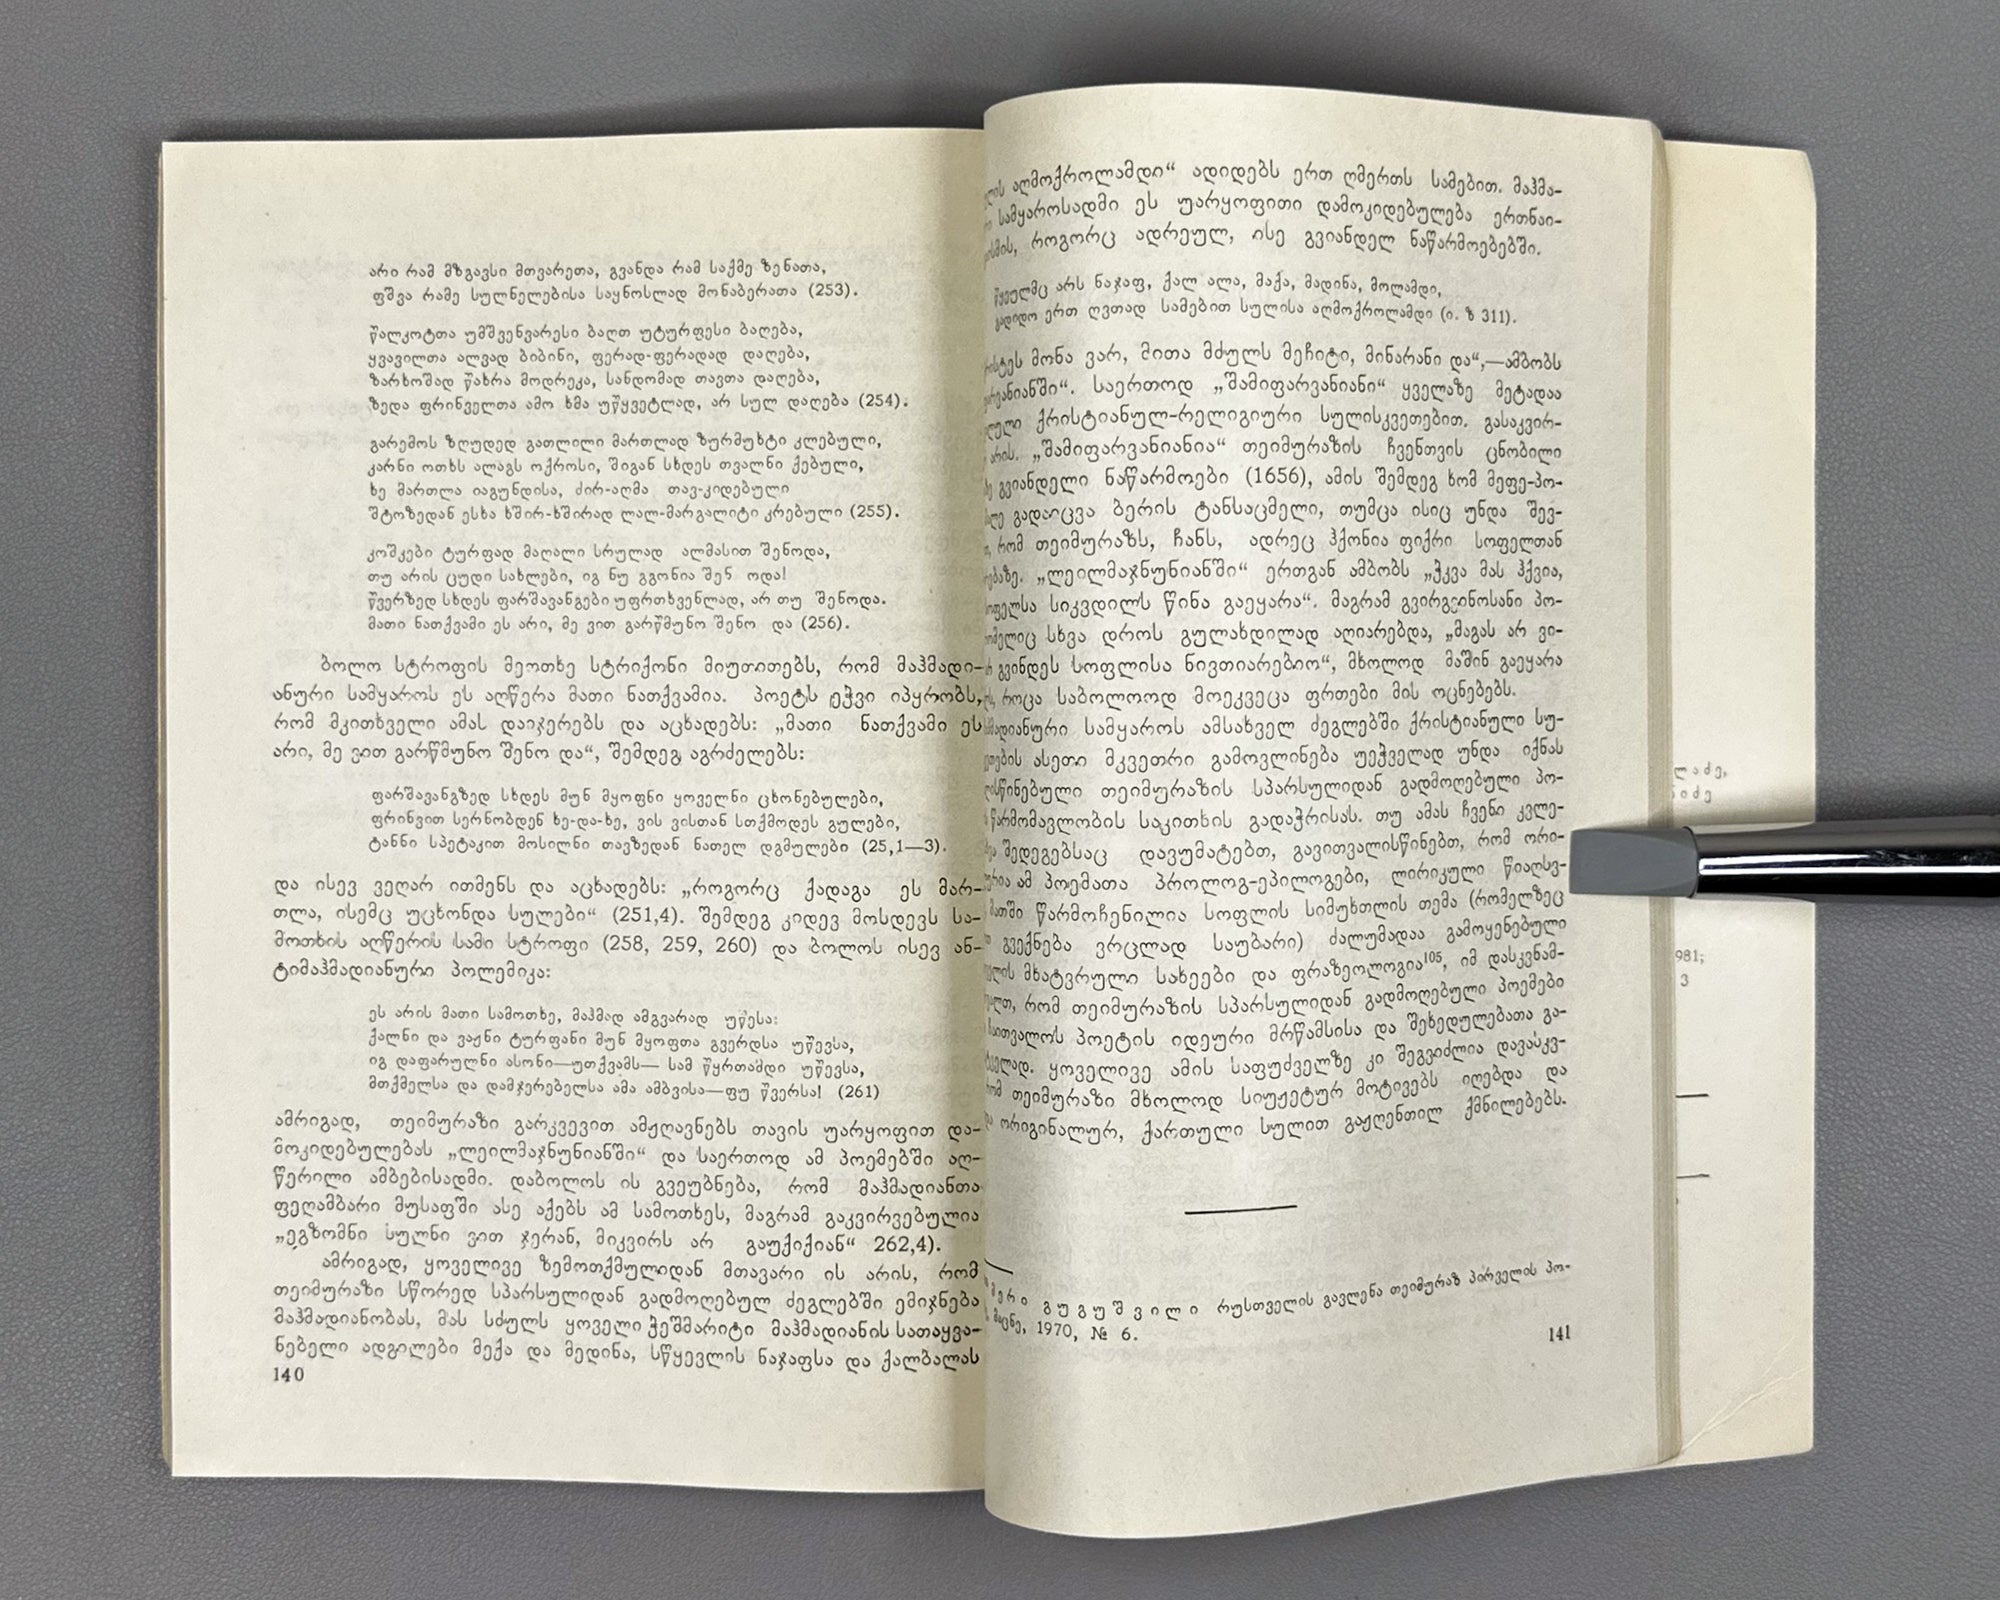 არი რამ მზგავსი მთვარეთა, გვანდა რამ საქმე ზენათა,
ფშვა რამე სულნელებისა საყნოსლად მონაბერათა (253).
წალკოტთა უმშვენვარესი ბაღთ უტურფესი ბაღება,
ყვავილთა ალვად ბიბინი, ფერად-ფერადად დაღება,
ზარხოშად წახრა მოდრეკა, სანდომად თავთა დაღება,
ზედა ფრინველთა ამო ხმა უწყვეტლად, არ სულ დაღება (254).
გარემოს ზღუდედ გათლილი მართლად ზურმუხტი კლებული,
კარნი ოთხს ალაგს ოქროსი, შიგან სხდეს თვალნი ქებული,
ხე მართლა იაგუნდისა, ძირ-აღმა თავ-კიდებული
შტოზედან ესხა ხშირ-ხშირად ლალ-მარგალიტი კრებული (255).
კოშკები ტურფად მაღალი სრულად ალმასით შენოდა,
თუ არის ცუდი სახლები, იგ ნუ გგონია შენ ოდა!
წვერზედ სხდეს ფარშავანგები უფრთხვენლად, არ თუ შენოდა.
მათი ნათქვამი ეს არი, მე ვით გარწმუნო შენო და (256).
ბოლო სტროფის მეოთხე სტრიქონი მიუთითებს, რომ მაჰმადი-
ანური სამყაროს ეს აღწერა მათი ნათქვამია. პოეტს ეჭვი იპყრობს,
რომ მკითხველი ამას დაიჯერებს და აცხადებს: „მათი ნათქვამი ეს
არი, მე ვით გარწმუნო შენო და“, შემდეგ აგრძელებს:
ფარშავანგზედ სხდეს მუნ მყოფნი ყოველნი ცხონებულები,
ფრინვით სერნობდენ ხე-და-ხე, ვის ვისთან სთქმოდეს გულები,
ტანნი სპეტაკით მოსილნი თავზედან ნათელ დგმულები (25,1—3).
და ისევ ვეღარ ითმენს და აცხადებს: „როგორც ქადაგა ეს მარ-
თლა, ისემც უცხონდა სულები“ (251,4). შემდეგ კიდევ მოსდევს სა-
მოთხის აღწერის სამი სტროფი (258, 259, 260) და ბოლოს ისევ ან-
ტიმაჰმადიანური პოლემიკა:
ეს არის მათი სამოთხე, მაჰმად ამგვარად უწესა:
ქალნი და ვაჟნი ტურფანი მუნ მყოფთა გვერდსა უწევსა,
იგ დაფარულნი ასონი—უთქვამს— სამ წყრთამდი უწევსა,
მთქმელსა და დამჯერებელსა ამა ამბვისა—ფუ წვერსა! (261)
ამრიგად, თეიმურაზი გარკვევით ამჟღავნებს თავის უარყოფით და-
მოკიდებულებას „ლეილმაჯნუნიანში“ და საერთოდ ამ პოემებში აღ-
წერილი ამბებისადმი. დაბოლოს ის გვეუბნება, რომ მაჰმადიანთა
ფეღამბარი მუსაფში ასე აქებს ამ სამოთხეს, მაგრამ გაკვირვებულია
„ეგზომნი სულნი ვით ჯერან, მიკვირს არ გაუქიქიან“ 262,4).
ამრიგად, ყოველივე ზემოთქმულიდან მთავარი ის არის, რომ
თეიმურაზი სწორედ სპარსულიდან გადმოღებულ ძეგლებში ემიჯნება
მაჰმადიანობას, მას სძულს ყოველი ჭეშმარიტი მაჰმადიანის სათაყვა-
ნებელი ადგილები მექა და მედინა, სწყევლის ნაჯაფსა და ქალბალას
140
აღმოქროლამდი“ ადიდებს ერთ ღმერთს სამებით. მაჰმა-
სამყაროსადმი ეს უარყოფითი დამოკიდებულება ერთნაი-
როგორც ადრეულ, ისე გვიანდელ ნაწარმოებებში.
წყეულმც არს ნაჯაფ, ქალ ალა, მაქა, მადინა, მოლამდი,
ერთ ღვთად სამებით სულისა აღმოქროლამდი (ი. ზ 311).
მონა ვარ, მითა მძულს მეჩიტი, მინარანი და“,—ამბობს
საერთოდ „შამიფარვანიანი“ ყველაზე მეტადაა
ქრისტიანულ-რელიგიური სულისკვეთებით. გასაკვირ-
არის. „შამიფარვანიანია“ თეიმურაზის ჩვენთვის ცნობილი
გვიანდელი ნაწარმოები (1656), ამის შემდეგ ხომ მეფე-პო-
გადაიცვა ბერის ტანსაცმელი, თუმცა ისიც უნდა შევ-
რომ თეიმურაზს, ჩანს, ადრეც ჰქონია ფიქრი სოფელთან
„ლეილმაჯნუნიანში“ ერთგან ამბობს „ჭკვა მას ჰქვია,
სიკვდილს წინა გაეყარა“. მაგრამ გვირგვინოსანი პო-
სხვა დროს გულახდილად აღიარებდა, „მაგას არ ვი-
გვინდეს სოფლისა ნივთიარებიო“, მხოლოდ მაშინ გაეყარა
როცა საბოლოოდ მოეკვეცა ფრთები მის ოცნებებს.
სამყაროს ამსახველ ძეგლებში ქრისტიანული სუ-
ასეთი მკვეთრი გამოვლინება უეჭველად უნდა იქნას
თეიმურაზის სპარსულიდან გადმოღებული პო-
წარმომავლობის საკითხის გადაჭრისას. თუ ამას ჩვენი კვლე-
შედეგებსაც დავუმატებთ, გავითვალისწინებთ, რომ ორი-
ამ პოემათა პროლოგ-ეპილოგები, ლირიკული წიაღსვ-
წარმოჩენილია სოფლის სიმუხთლის თემა (რომელზეც
გვექნება ვრცლად საუბარი) ძალუმადაა გამოყენებული
მხატვრული სახეები და ფრაზეოლოგია¹⁰⁵, იმ დასკვნამ-
რომ თეიმურაზის სპარსულიდან გადმოღებული პოემები
პოეტის იდეური მრწამსისა და შეხედულებათა გა-
ყოველივე ამის საფუძველზე კი შეგვიძლია დავასკვ-
თეიმურაზი მხოლოდ სიუჟეტურ მოტივებს იღებდა და
ორიგინალურ, ქართული სულით გაჟღენთილ ქმნილებებს.
გუგუშვილი რუსთველის გავლენა თეიმურაზ პირველის პო-
მაცნე, 1970, № 6.
141
ლაძე,
981;
3